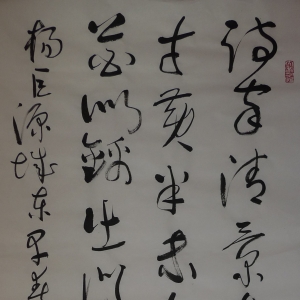 诗家清景
才黄半未
花似錦出
楊巨源城东早春